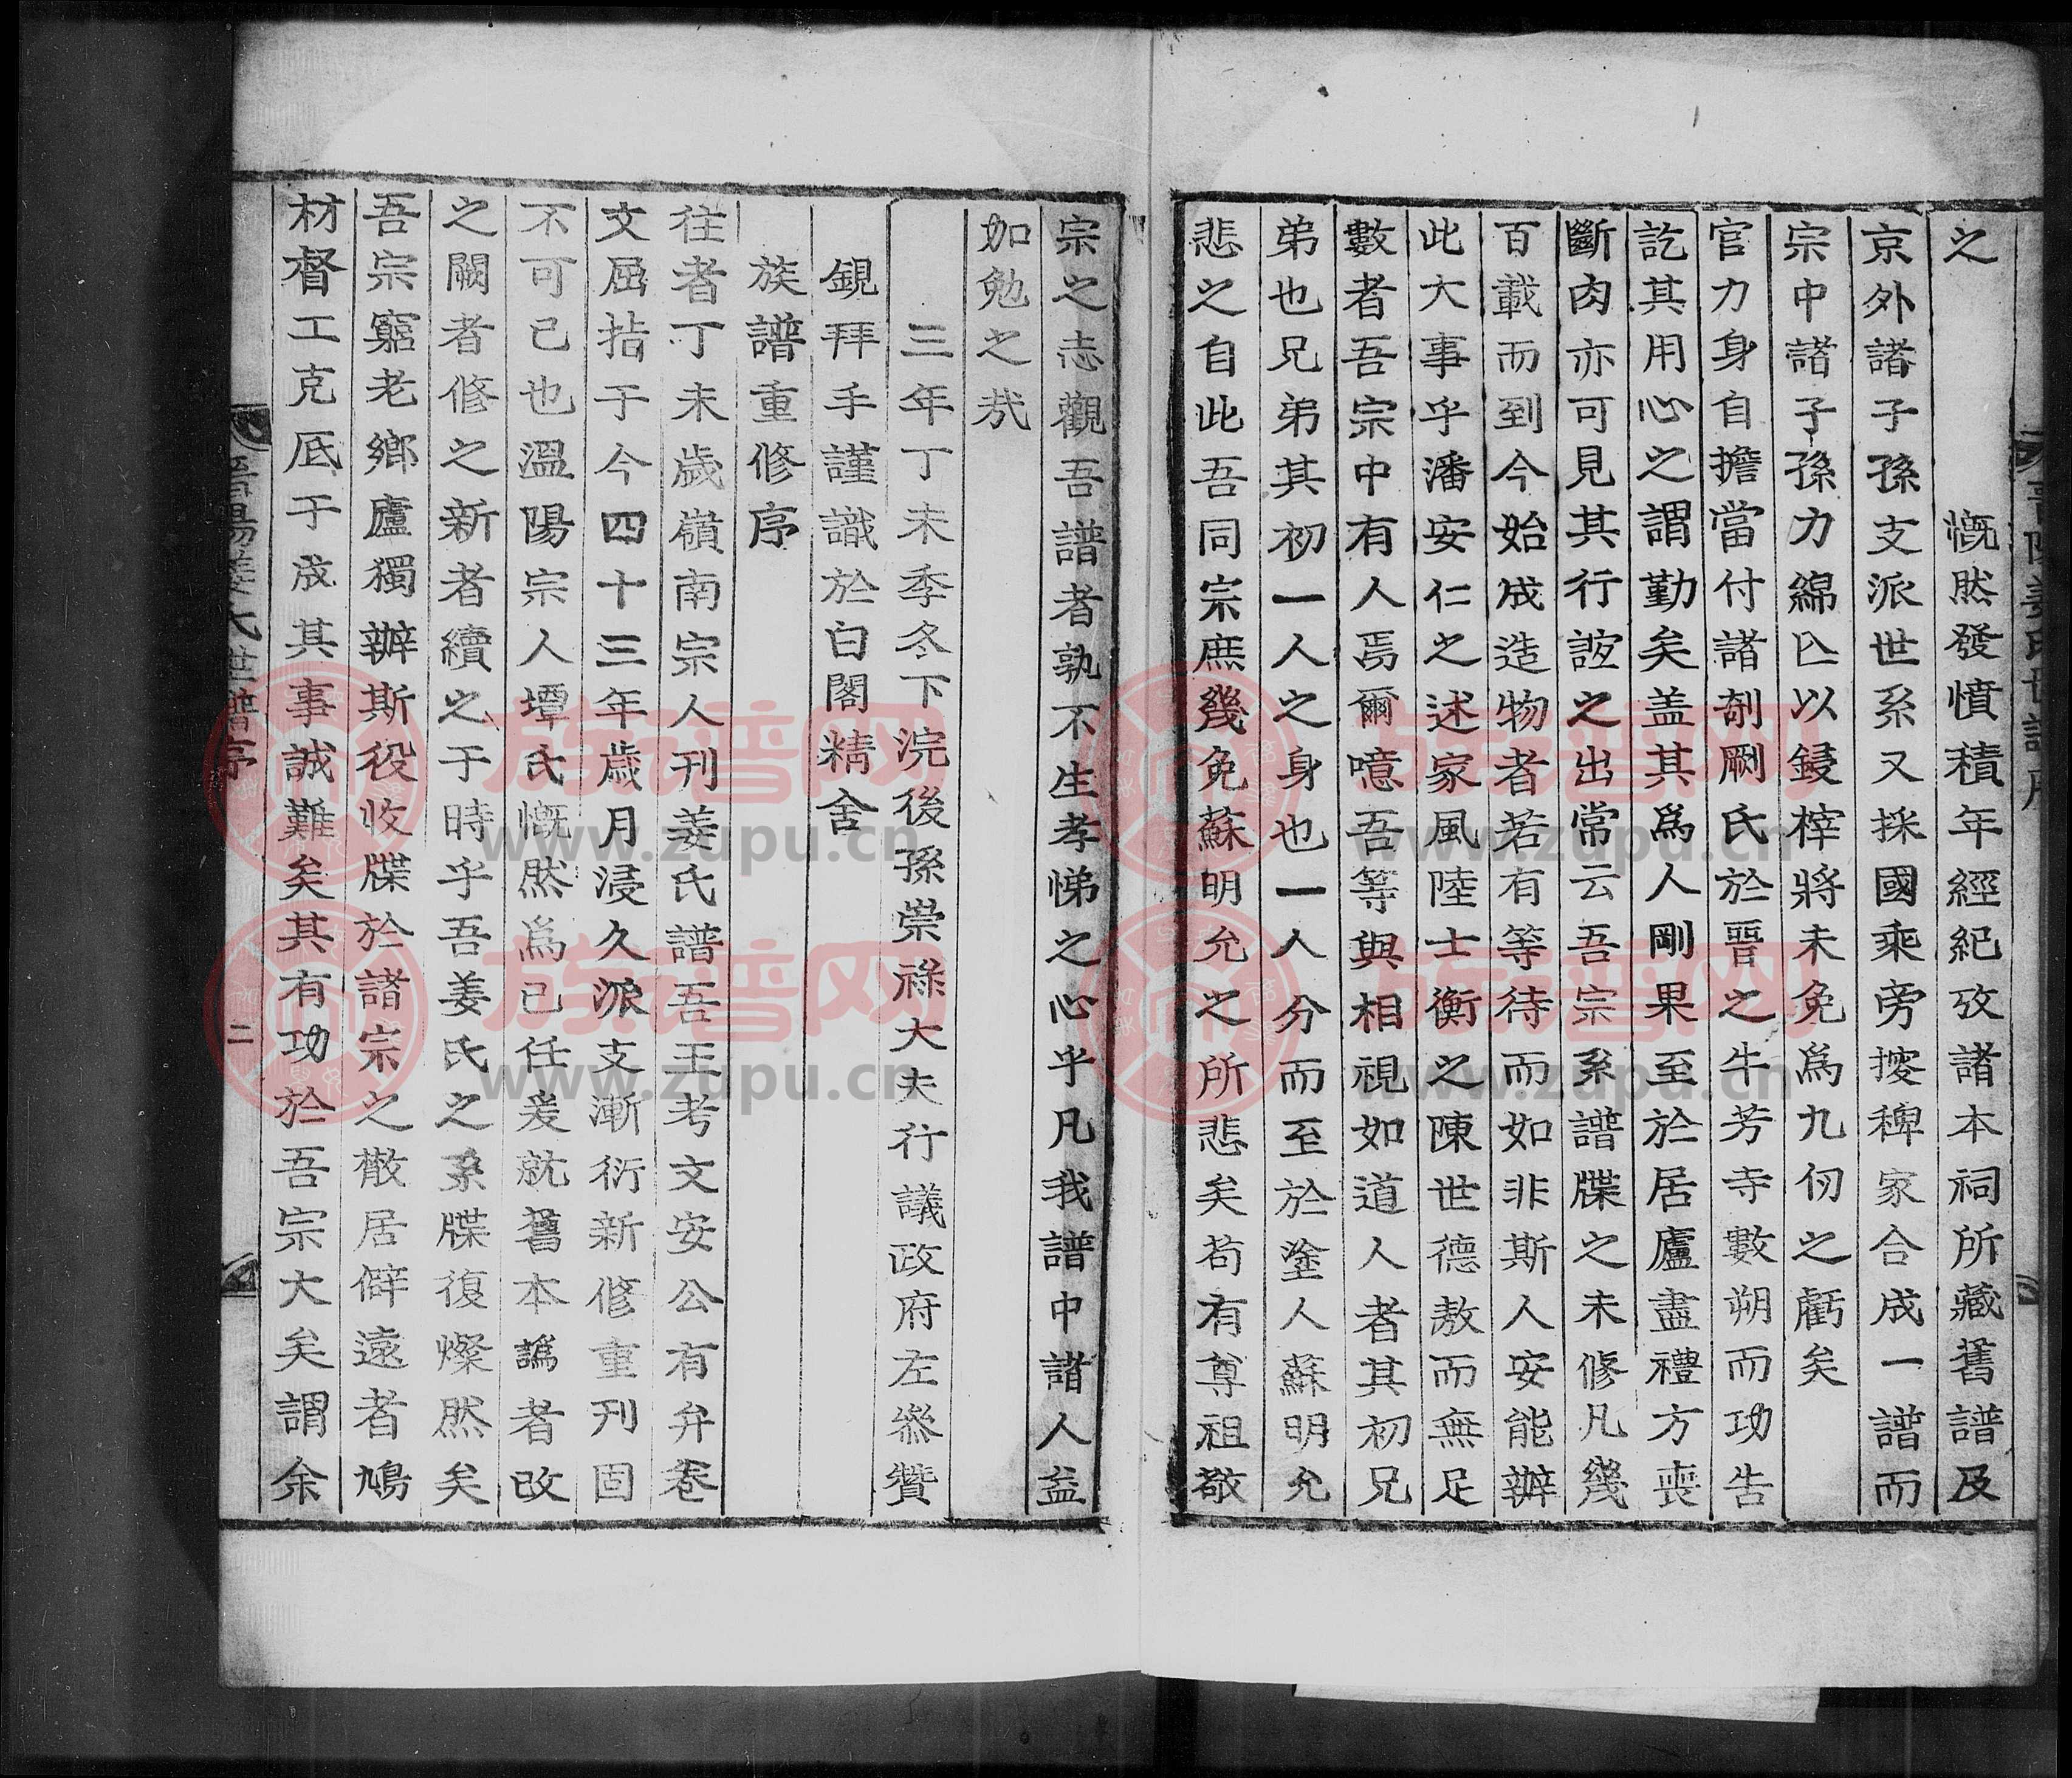 之　　慨然發憤積年經紀攷諸本祠所藏舊譜及
京外諸子孫支派世系又採國乘旁搜稗家合成一譜而
宗中諸子孫力綿亾以鋟梓將未免爲九仞之虧矣
官力身自擔當付諸剞劂氏於晋之牛芳寺數朔而功告
訖其用心之謂勤矣盖其爲人剛果至於居廬盡禮方喪
斷肉亦可見其行誼之出常云吾宗系譜牒之未修凡幾
百載而到今始成造物者若有等待而如非斯人安能辦
此大事乎潘安仁之述家風陸士衡之陳世德敖而無足
數者吾宗中有人焉爾噫吾等與相視如道人者其初兄
弟也兄弟其初一人之身也一人分而至於塗人蘇明允
悲之自此吾同宗庶幾免蘇明允之所悲矣苟有尊祖敬
宗之志觀吾譜者孰不生孝悌之心乎凡我譜中諸人益
加勉之㢤
三年丁未季冬下浣後孫崇祿大夫行議政府左叅贊
鋧拜手謹識於白閣精舍
族譜重修序
往者丁未歲嶺南宗人刊姜氏譜吾王考文安公有弁卷
文屈指于今四十三年歲月浸久派支漸衍新修重刊固
不可已也溫陽宗人墰氏慨然爲己任爰就舊本譌者改
之闕者修之新者續之于時乎吾姜氏之系牒復燦然矣
吾宗窮老鄉廬獨辦斯役收牒於諸宗之散居僻遠者鳩
材督工克厎于成其事誠難矣其有功於吾宗大矣謂余
晋陽姜氏世譜序
二
族谱网
www.zupu.cn
族谱网
www.zupu.cn
族谱网
www.zupu.cn
族谱网
www.zupu.cn